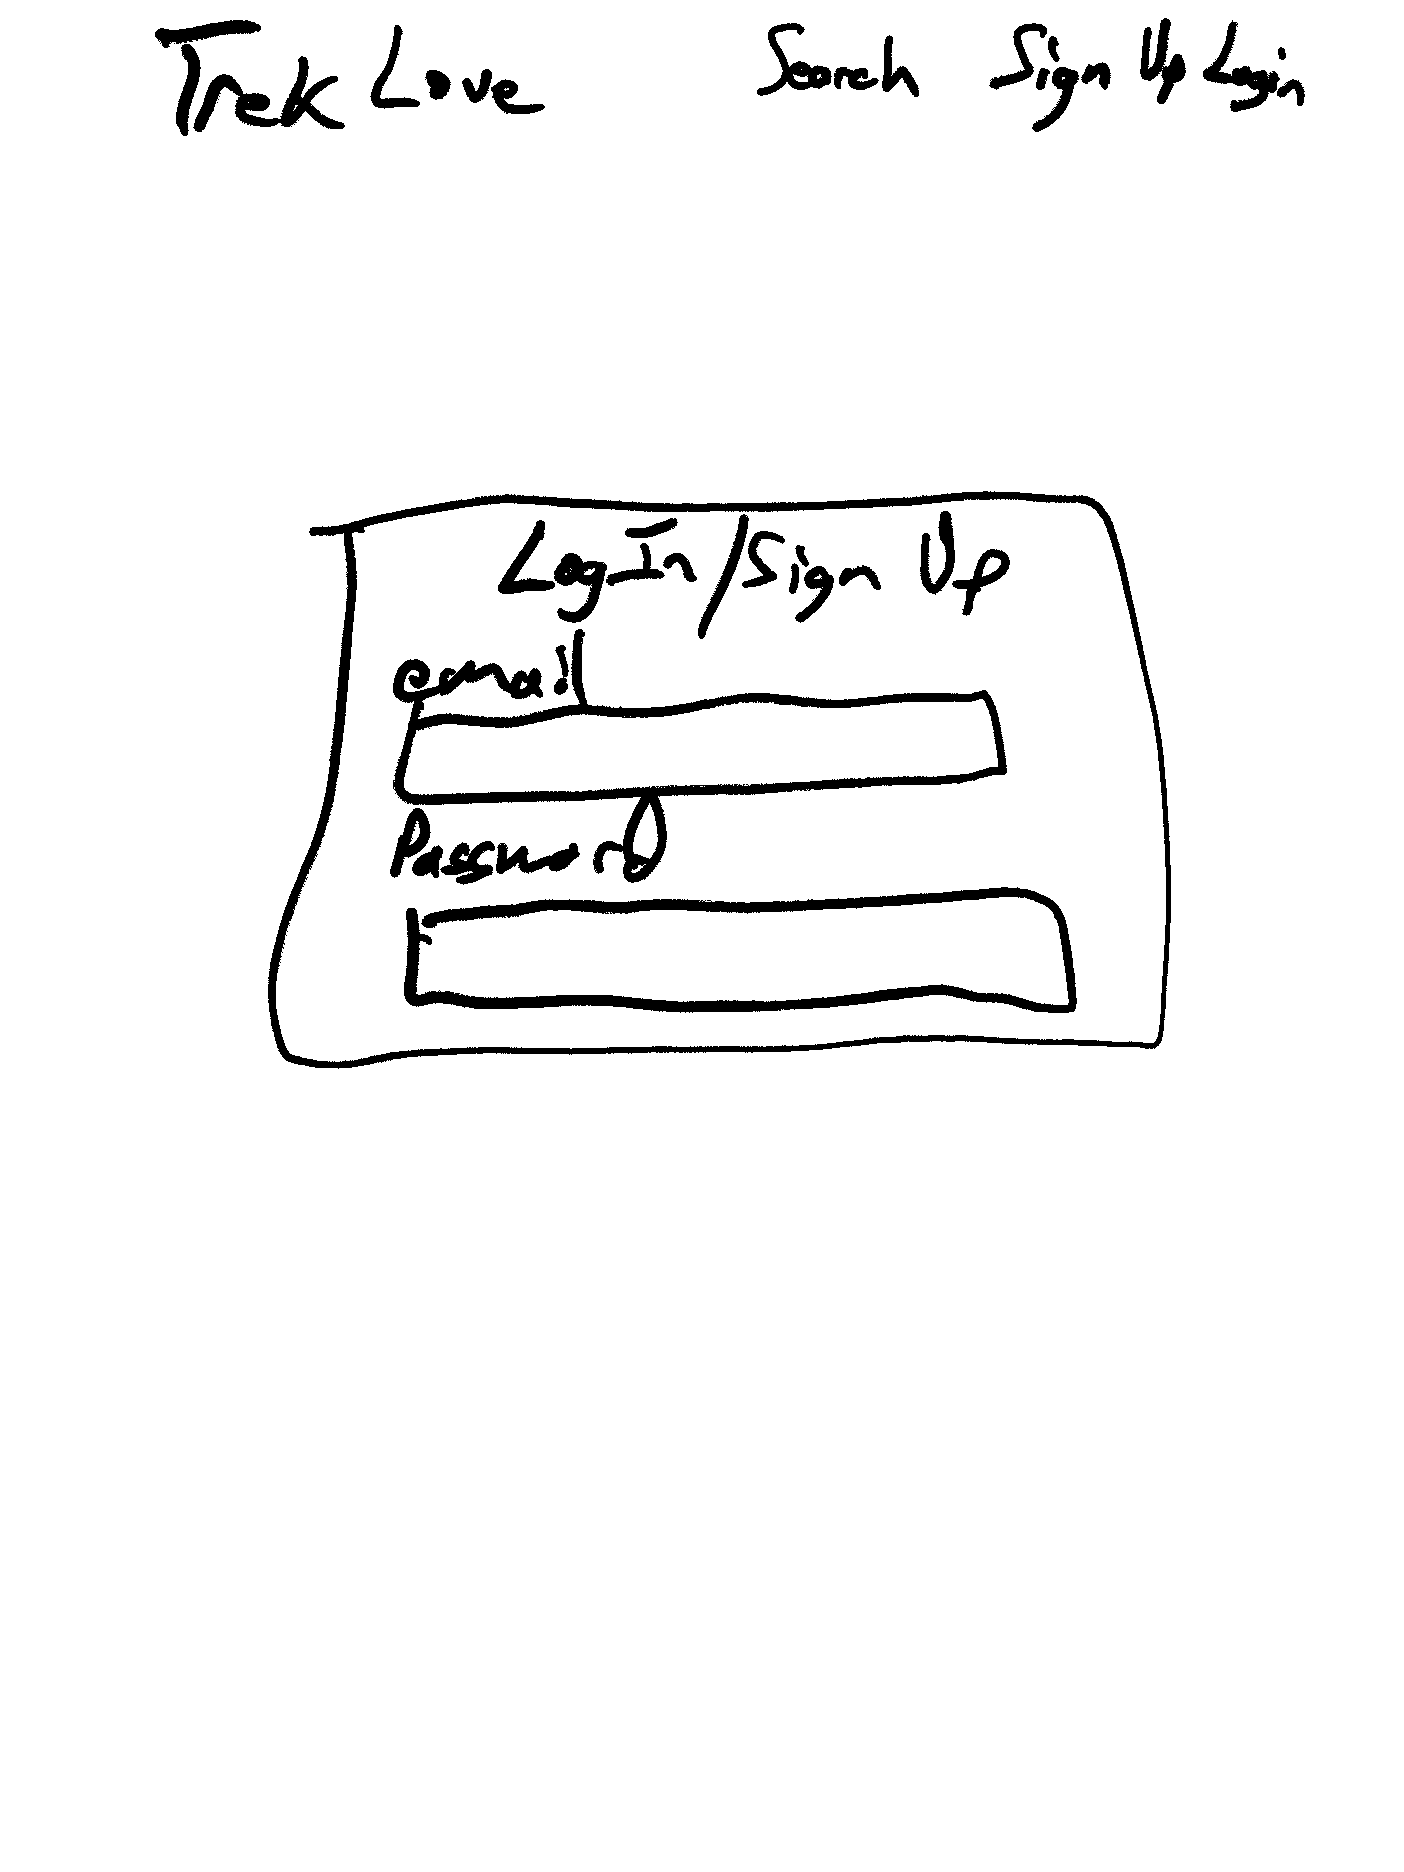 Trek Love Search Sign Up Login
Log In/Sign Up
email
Password